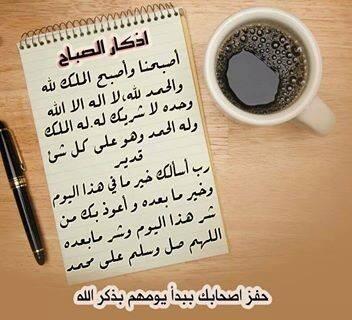 اذكار الصباح
أصبحنا وأصبح الملك لله
والحمد لله، لا اله الا الله
وحده لا شريك له، له الملك
وله الحمد وهو على كل شئ
قدير
رب أسألك خير ما في هذا اليوم
وخير ما بعده و أعوذ بك من
شر هذا اليوم وشر مابعده
اللهم صل وسلم على محمد
حفز اصحابك ببدأ يومهم بذكر الله